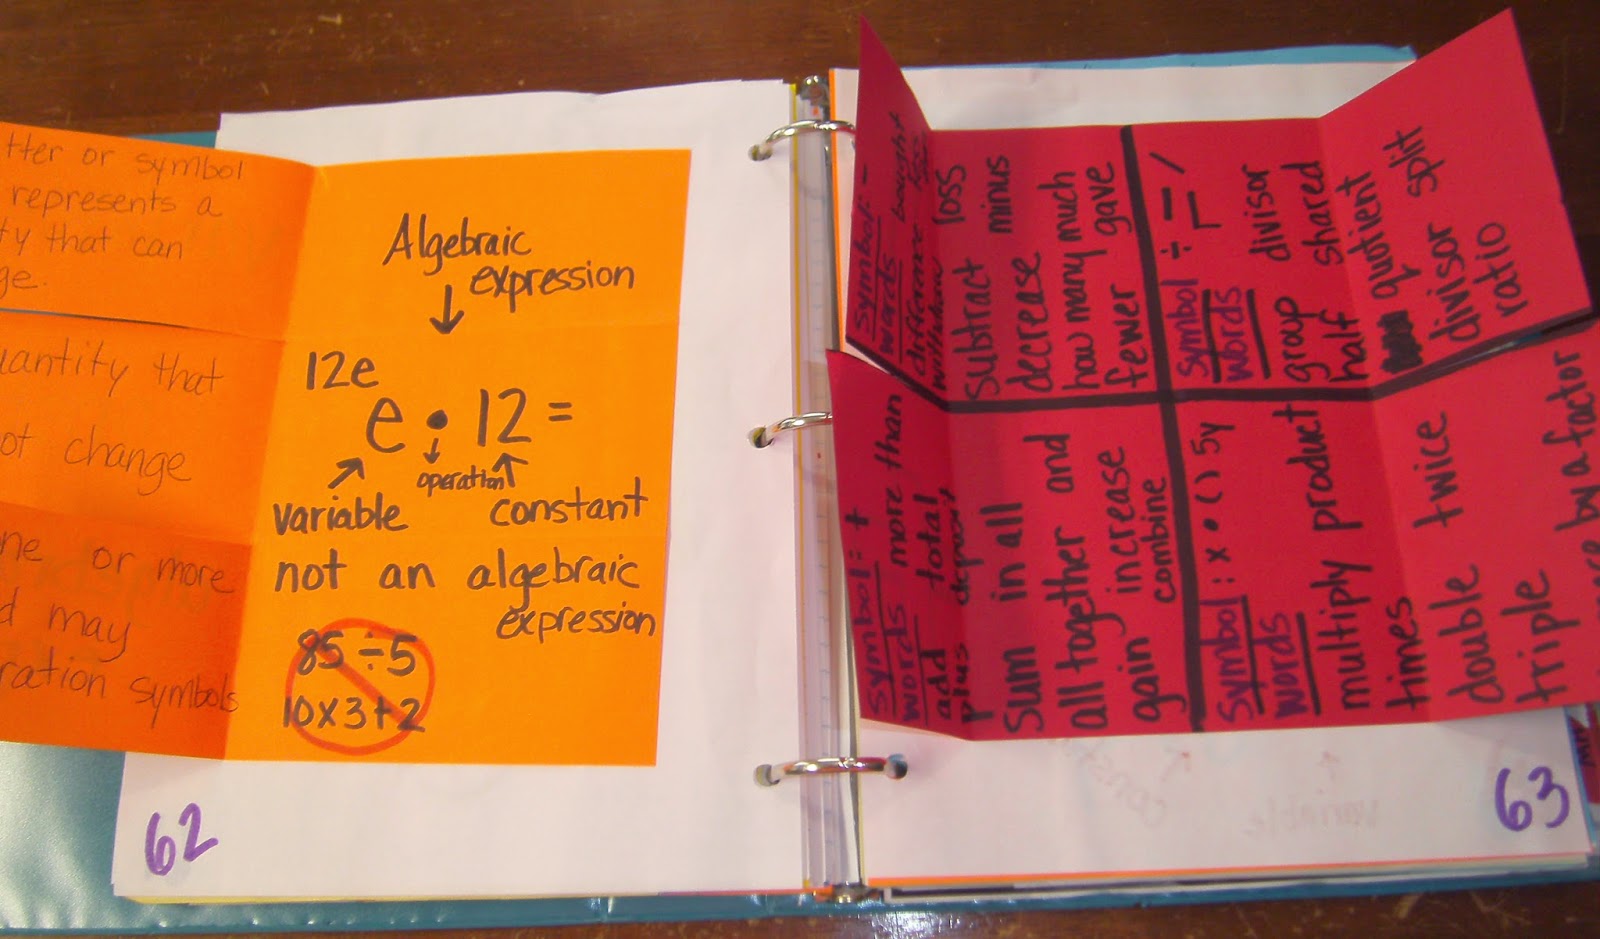 tter or symbol
represents a
ty that can
ge.
uantity that
ot change
ne or more
d may
ration symbols
Algebraic
expression
12e
e • 12 =
operation
variable constant
not an algebraic
expression
85 ÷ 5
10x3+2
62
symbol: -
words bought
difference less
withdraw
subtract loss
decrease minus
how many much
fewer gave
symbol ÷ /
words
group divisor
half shared
quotient
divisor split
ratio
symbol: +
words more than
add total
plus deposit
sum in all
all together and
gain increase
combine
symbol: x • ( ) 5y
words
multiply product
times
double twice
triple
more by a factor
63
variable